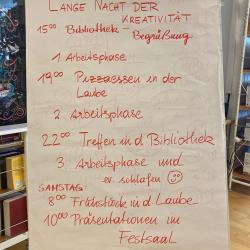 LANGE NACHT DER
KREATIVITÄT
15⁰⁰ Bibliothek -
Begrüßung
1. Arbeitsphase
19⁰⁰ Pizzaessen in der
Laube
2. Arbeitsphase
22⁰⁰ Treffen in d. Bibliothek
3. Arbeitsphase und
schlafen ☺
SAMSTAG:
8⁰⁰ Frühstück in d. Laube
10⁰⁰ Präsentationen im
Festsaal